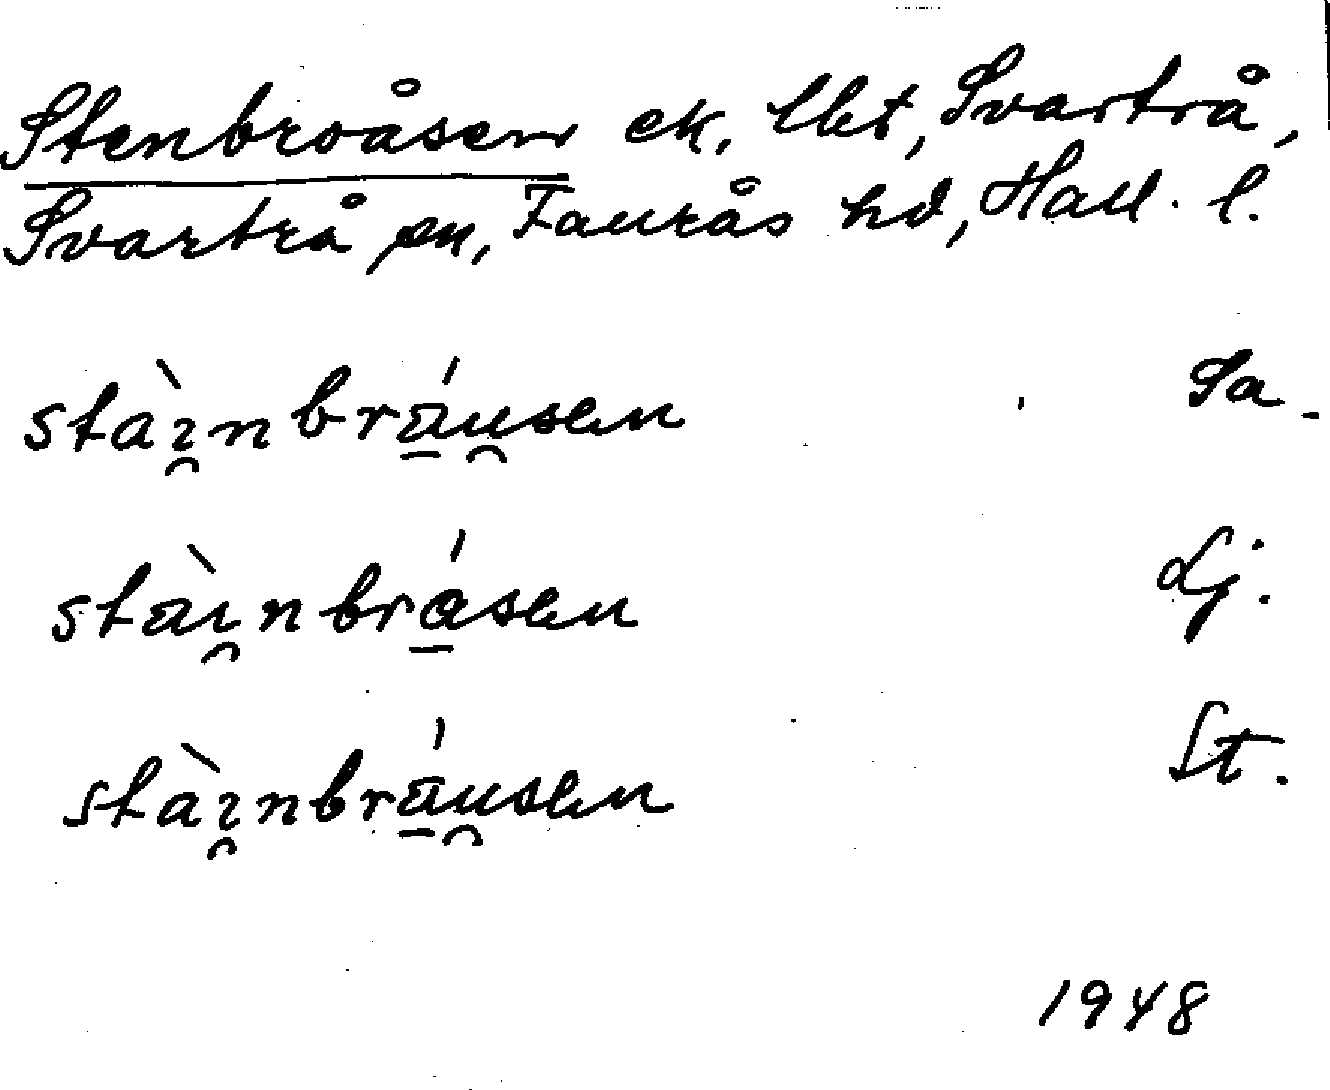 Stenbroåsen ek, lbt, Svartrå,
Svartrå sn, Faurås hd, Hall. l.
stàı̯nbrá̱u̯sen Sa.
stàı̯nbrá̱sen Lj.
stàı̯nbrá̱u̯sen St.
1948